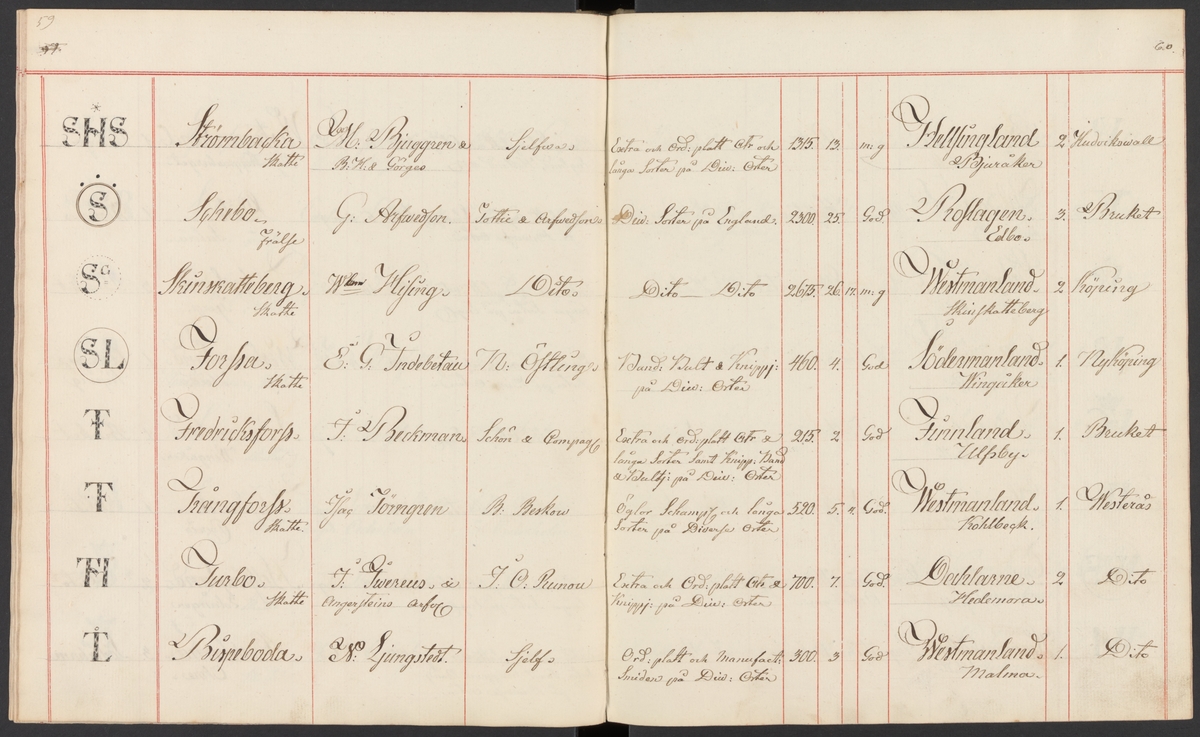 59
60.
SHS Strömbacka M: Bjuggren & Sjelfva. Extra och Ord: platt Gtr och 1315. 13. m: g Hellsingland 2 Hudvikswall
Skatte B: H: & Görges långa Sorter på Div: Orter Bjuråker
S Schebo. G: Arfwedson. Tottie & Arfwedson. Div: Sorter på England. 2300. 25. God Roslagen. 3. Bruket
Frälse Edbo.
Sc Skinskatteberg. Wilhm Hising. Dito. Dito Dito 2675. 26. 17. m: g Westmanland. 2 Köping
Skatte Skinskatteberg
SL Forssa. E: G: Indebetou N: Östling. Band: Bult & Knippj: 460. 4. God Södermanland. 1. Nyköping
Skatte på Div: Orter Wingåker
T Fredricksforss. J: Beckman. Schön & Compag: Extra och Ord: platt Gtr & 215. 2 God Finnland. 1. Bruket
långa Sorter samt Knipp: Band Ulfsby.
& Bultj: på Div: Orter
T Trångforss. Isac Törngren B: Beskow Öglor Schampl. och långa 520. 5. 4. God. Westmanland. 1. Westerås
Skatte. Sorter på Diverse Orter Kohlbeck.
TH Turbo. J: Svereus. & J. O: Runou Extra och Ord: platt Gtr & 700. 7. God. Dahlarne. 2. Dito
Skatte Angersteins Arfv. Knippj: på Div: Orter Hedemora.
T Bispeboda. N: Ljungstedt. Sjelf. Ord: platt och Manufact: 300. 3 God Westmanland. 1. Dito
Smiden på Div: Orter Malma.